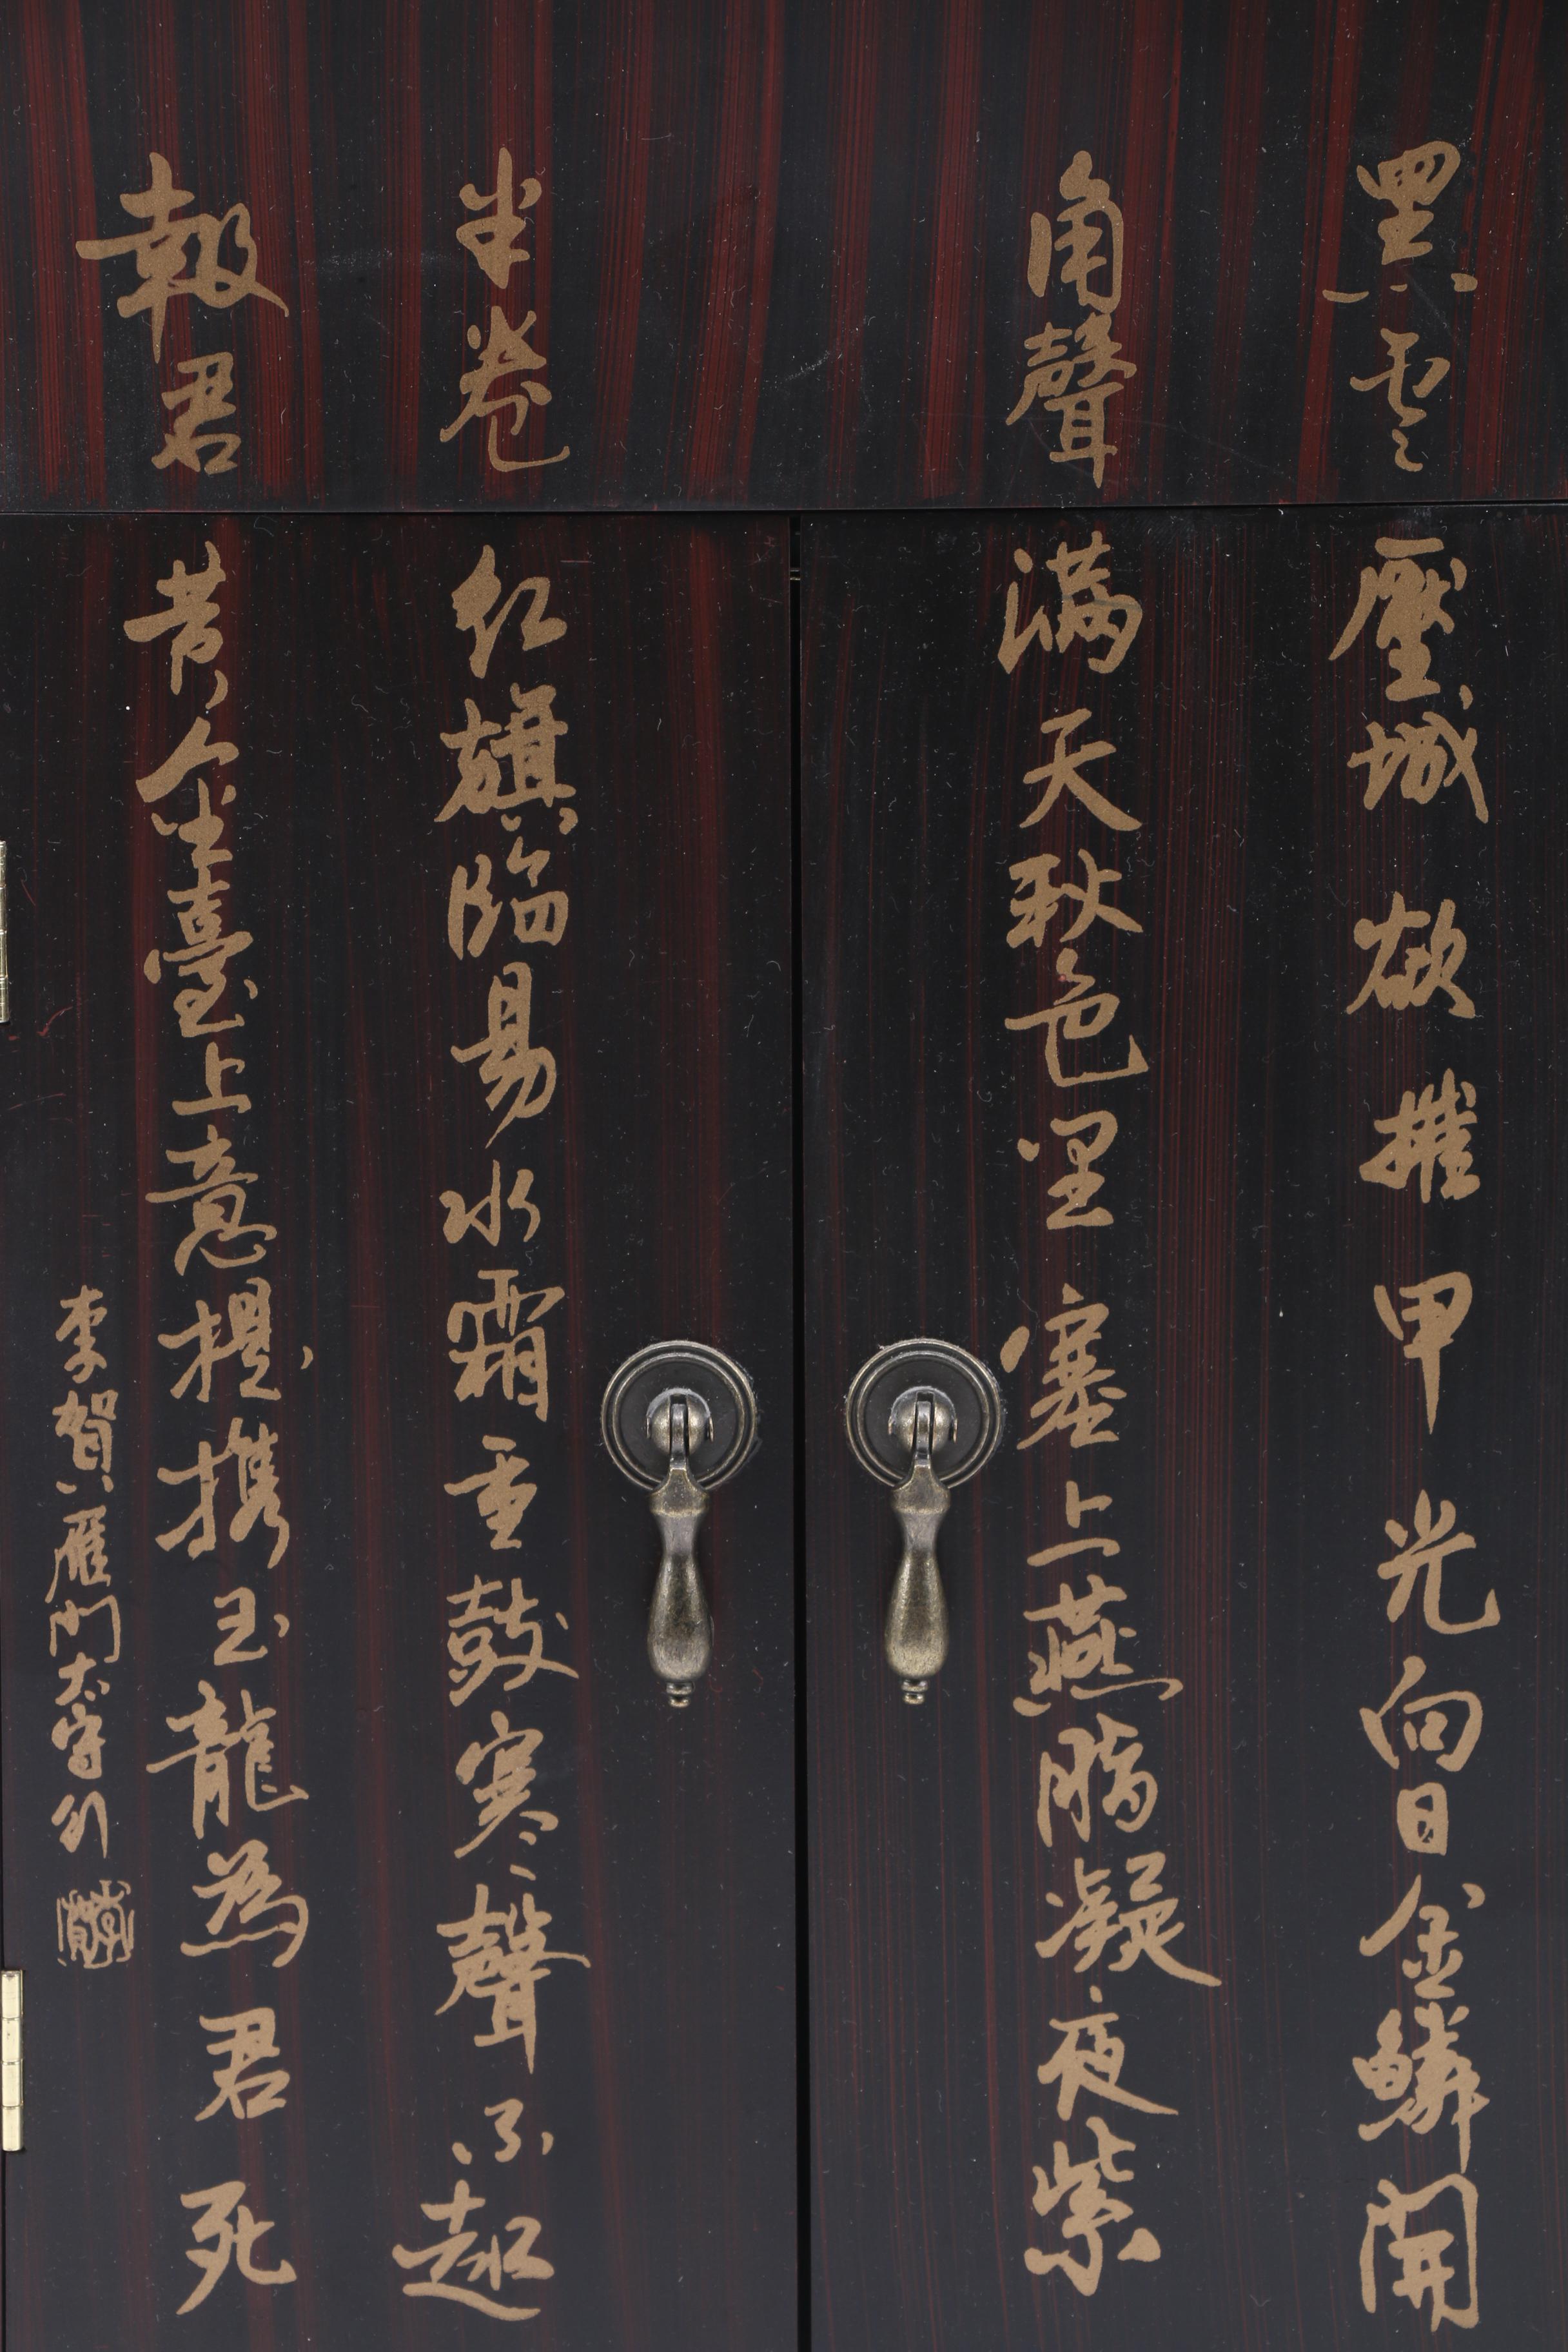 黑雲壓城欲摧甲光向日金鱗開
角聲滿天秋色里塞上燕脂凝夜紫
半卷紅旗臨易水霜重鼓寒聲不起
報君黃金臺上意提攜玉龍為君死
李賀雁門太守行